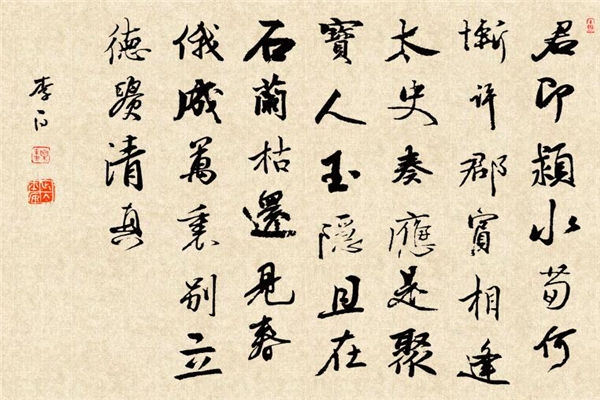 君即潁水荀何
慚許郡賓相逢
太史奏應是聚
寶人玉隱且在
石蘭枯還見春
俄成萬里別立
德貴清真
李白